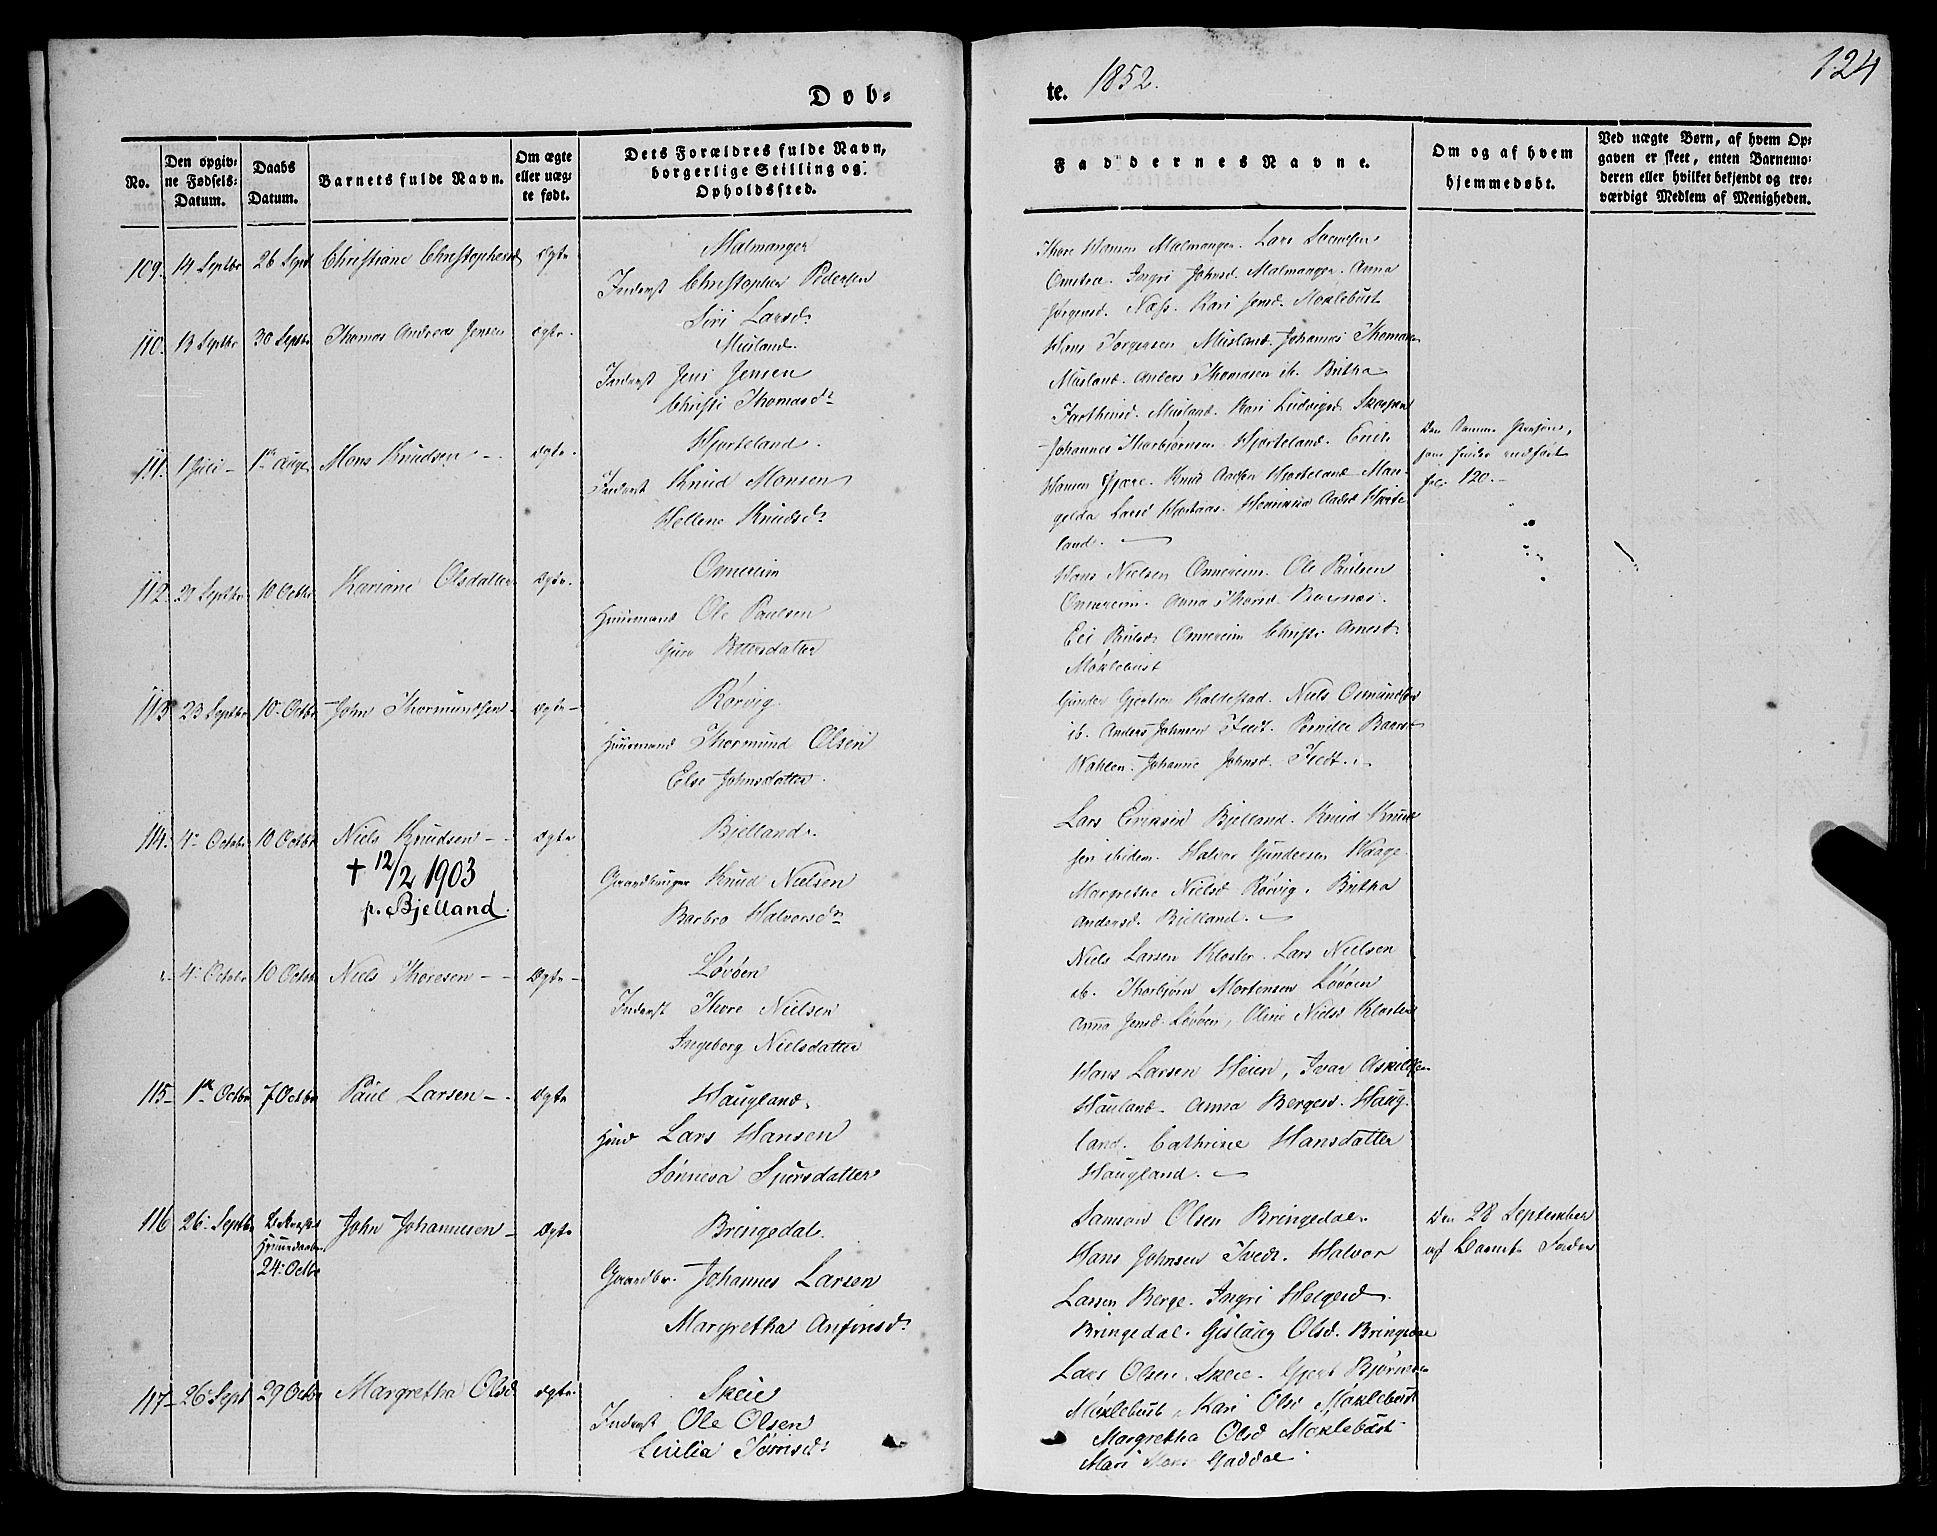 Døb-
te. 1852.
124
No.
Den opgiv-
ne Fødsels-
Datum.
Daabs
Datum.
Barnets fulde Navn.
Om ægte
eller uæg-
te født.
Dets Forældres fulde Navn,
borgerlige Stilling og
Opholdssted.
Faddernes Navne.
Om og af hvem
hjemmedøbt.
Ved uægte Børn, af hvem Op-
gaven er skeet, enten Barnemo-
deren eller hvilket bekjendt og tro-
værdigt Medlem af Menigheden.
109. 14 Septbr 26 Sept Christiane Christophersd ægte
Malmanger
Inderst Christopher Pedersen
Siri Larsd.
Thore Hansen Malmanger. Lars
Ingri Johnsd. Malmanger. Anna
Jørgensd. Næss. Kari Jensd. Møxlebust
110. 13 Septbr 30 Septbr Thomas Andreas Jensen ægte.
Musland.
Inderst Jens Jensen
Christi Thomasdr
Hans Torgersen Musland. Johannes Thomasen
Musland. Anders Thomasen ib. Britha
Musland. Kari Ludvigsd.
111. 1 Juli - 1ste Aug. Mons Knudsen - ægte.
Hjorteland.
Inderst Knud Monsen
Hellene Knudsdr
Johannes Thorbjørnsen Hjorteland. Erik
Hansen Knud Hjorteland. Man-
gelda Larsd Hjorte-
land.
Den samme Person,
som findes indført
fol. 120.
112. 20 Septbr 10 Octbr Kariane Olsdatter ægte.
Omereim
Huusmand Ole Paulsen
Guro Petersdatter
Hans Nielsen Omereim. Ole Paulsen
Omereim. Anna Thorsd.
Eli Paulsd. Omereim Christi
Møxlebust
113. 23 Septbr 10. Octbr John Thormundsen ægte -
Rørvig.
Huusmand Thormund Olsen
Else Johnsdatter.
Gunder Kaldestad. Niels Osmundsen
ib. Anders Johnsen Tvedt. Pernille
Wahlen. Johanne Johnsd. Tvedt.
114. 4. Octobr 10 Octbr Niels Knudsen - ægte
† 12/2 1903
p. Bjelland.
Bjelland.
Gaardbruger Knud Nielsen
Barbro Halvorsdr
Lars Bjelland. Knud Knud-
sen ibidem. Halvor Gundersen Waage
Margrethe Nielsd Rørvig. Britha
Andersd. Bjelland.
4. Octobr 10 Octbr Niels Thoresen - - ægte -
Løvøen
Inderst Thore Nielsen
Ingeborg Nielsdatter
Niels Larsen Kloster. Lars Nielsen
ib. Thorbjørn Mortensen Løvøen
Anna Jensd. Løvøen, Oline Nielsd Kloster
115 - 1ste Octbr 7 Octbr Paul Larsen - ægte
Haugland.
Huusmd Lars Hansen
Sønneva Sjursdatter
Hans Larsen Heien, Ivar Askildsen
Hauland. Anna Bergesd. Haug-
land. Cathrine Hansdatter
Haugland.
116 26. Septbr Bekræftet
Hjemmedaaben
24. Octbr
John Johannesen - ægte
Bringedal.
Gaardbr. Johannes Larsen
Margretha Anfinsd.
Samson Olsen Bringedal.
Hans Johnsen Tvedt. Halvor
Larsen Berge. Ingri Helgesd.
Bringedal. Gislaug Olsd. Bringedal
Den 28 September
af Barnets Fader
117 - 26. Sept 29 Octbr Margretha Olsd ægte
Skeie
Inderst Ole Olsen
Lars Olsen Skeie. Gjert
Møxlebust, Kari Olsd Møxlebust
Margretha Olsd Møxlebust
Mari